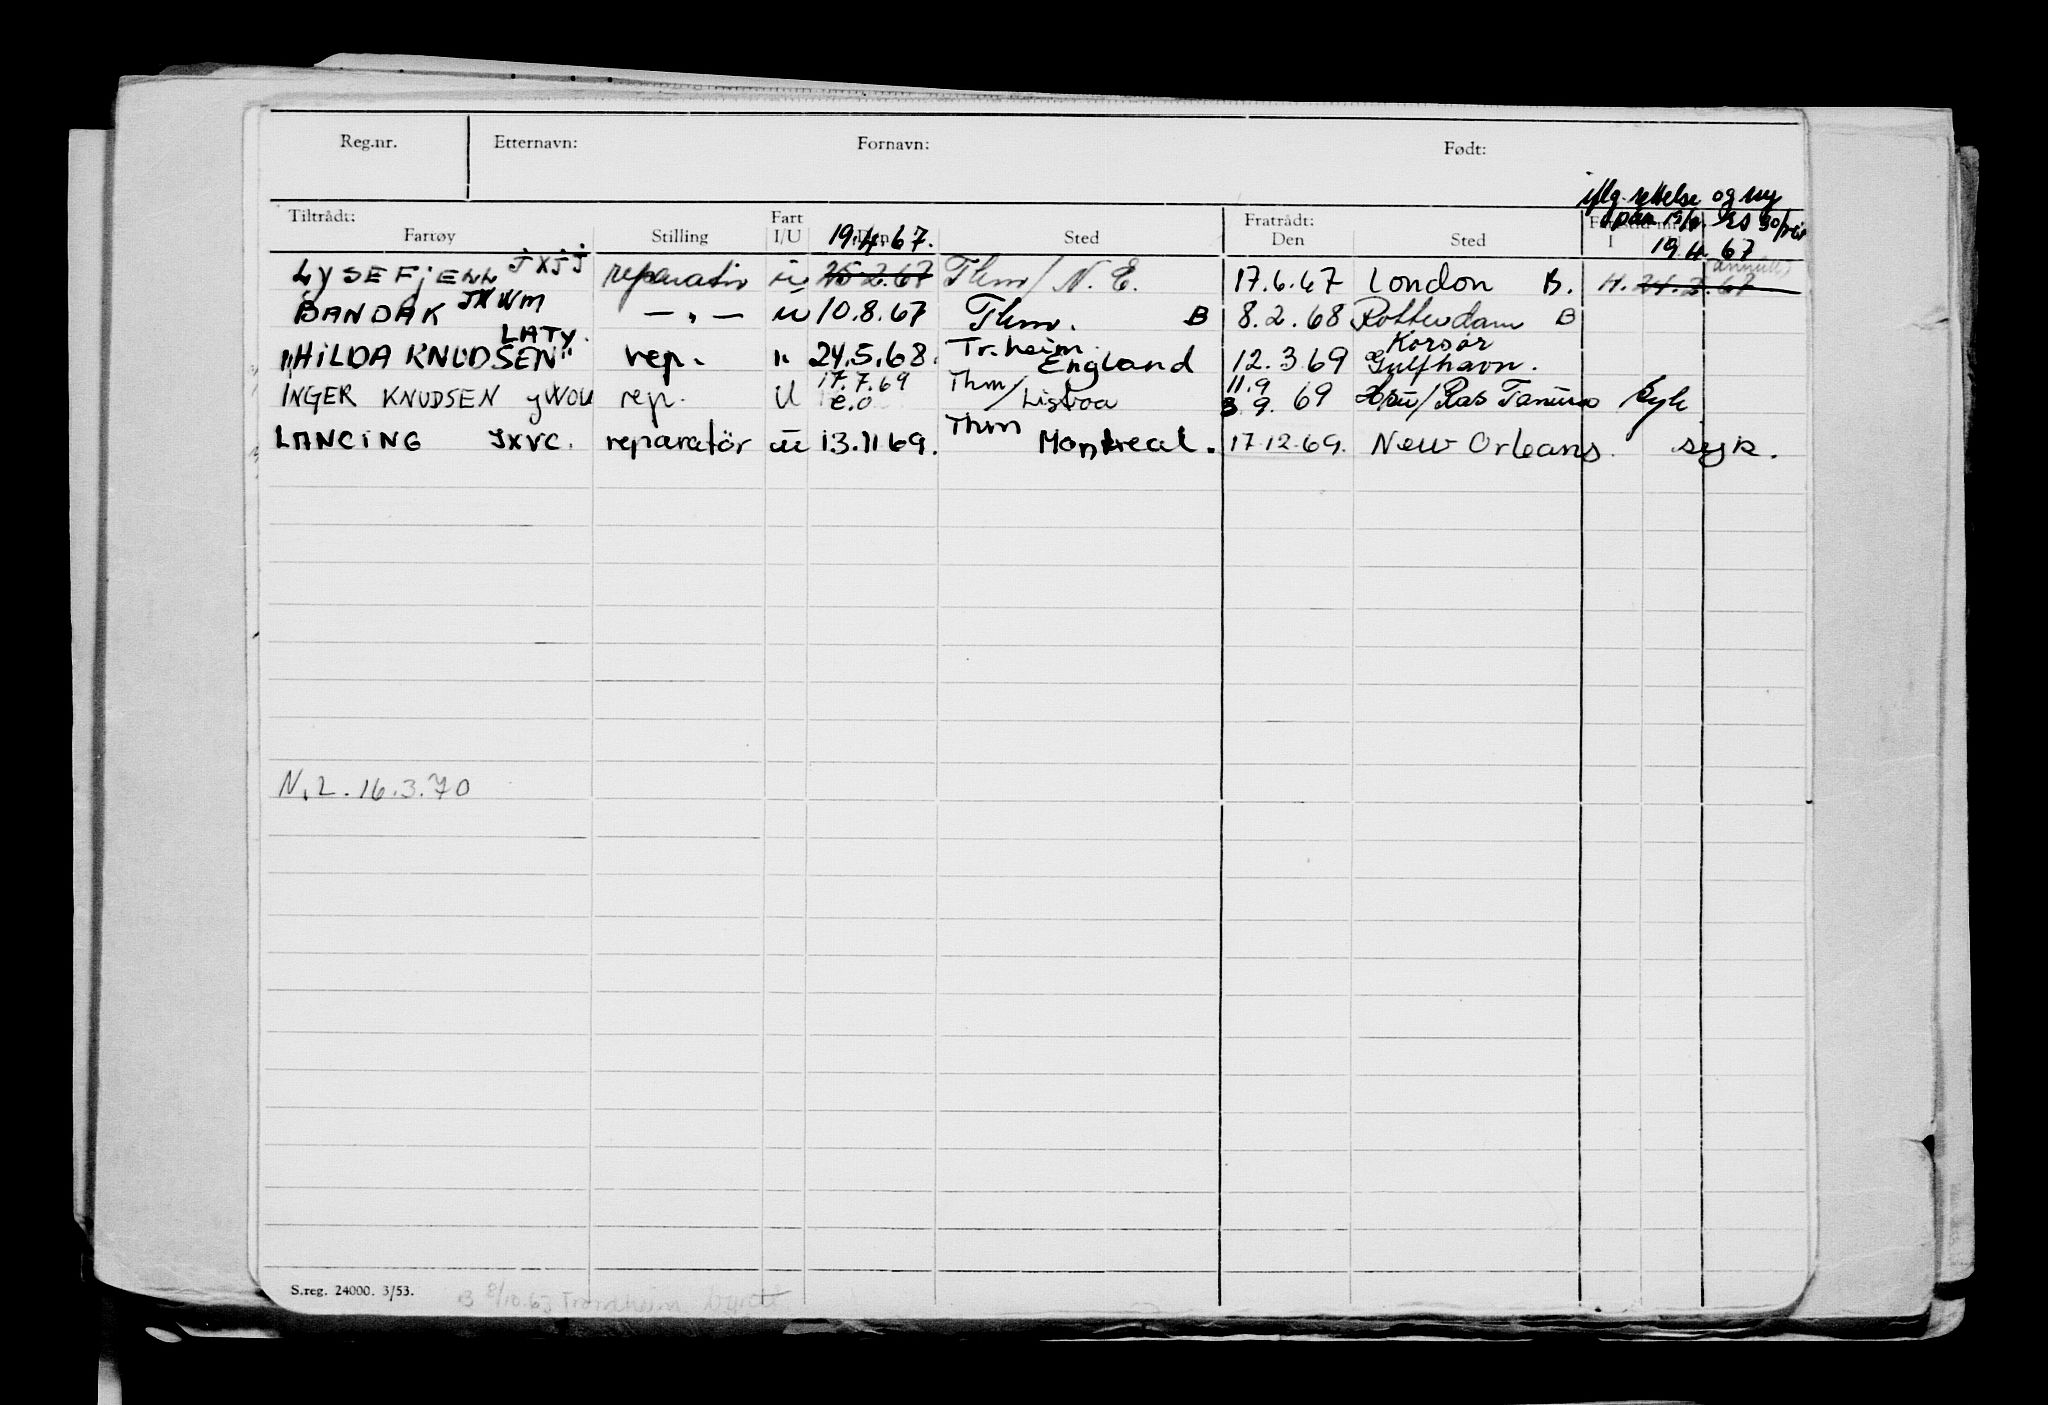 Reg.nr. Etternavn: Fornavn: Født:
iflg. rettelse og ny
Tiltrådt: Fart Fratrådt:
Fartøy Stilling I/U 19.4.67. Sted Den Sted I 19.4.67
LYSEFJELL JXJJ reparatør u 25.2.67 Thm/N.E. 17.6.67 London B. H. 24.2.67
BANDAK JXWM — „ — u 10.8.67 Thm. B 8.2.68 Rotterdam B
LATY. Tr.heim. Korsør
"HILDA KNUDSEN" rep. " 24.5.68. England 12.3.69 Gulfhavn.
17.7.69 Thm/ 11.9
INGER KNUDSEN rep. U e.o Lisboa 3.9. 69 /Ras Tanura syk
LANCING JXVC. reparatör u 13.11 69. Thm Montreal. 17.12.69. New Orleans. syk.
N.L. 16.3.70
S.reg. 24000. 3/53.
B 8/10.63 Trondheim